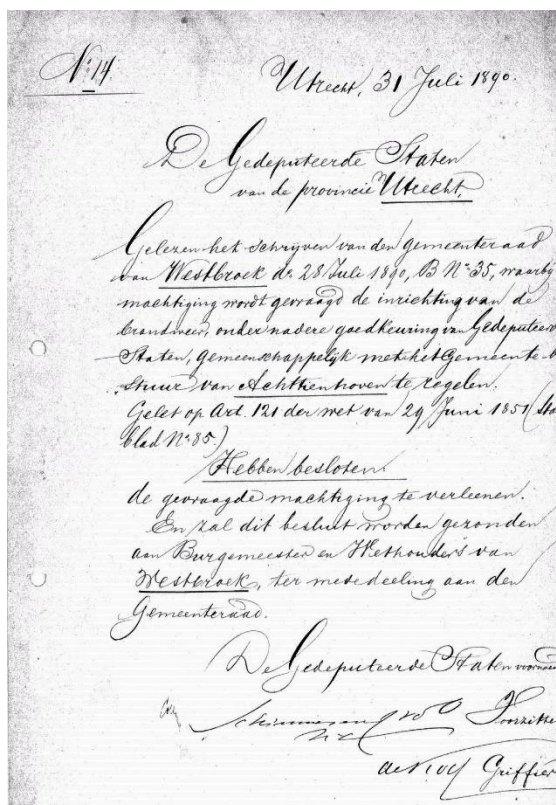 No 14.
Utrecht, 31 Juli 1890.
De Gedeputeerde Staten
van de provincie Utrecht,
Gelezen het schrijven van den gemeenteraad
van Westbroek de 28 Juli 1890, B No 35, waarbij
machtiging wordt gevraagd de inrichting van de
brandweer, onder nadere goedkeuring van Gedeputeer
Staten, gemeenschappelijk met het Gemeente-b
stuur van Achttienhoven te regelen.
Gelet op Art. 121 der wet van 29 Juni 1851 (Sta
blad No 85.)
Hebben besloten:
de gevraagde machtiging te verleenen.
En zal dit besluit worden gezonden
aan Burgemeester en Wethouders van
Westbroek, ter mededeeling aan den
Gemeenteraad.
De Gedeputeerde Staten voornoem
Voorzitte
Griffier